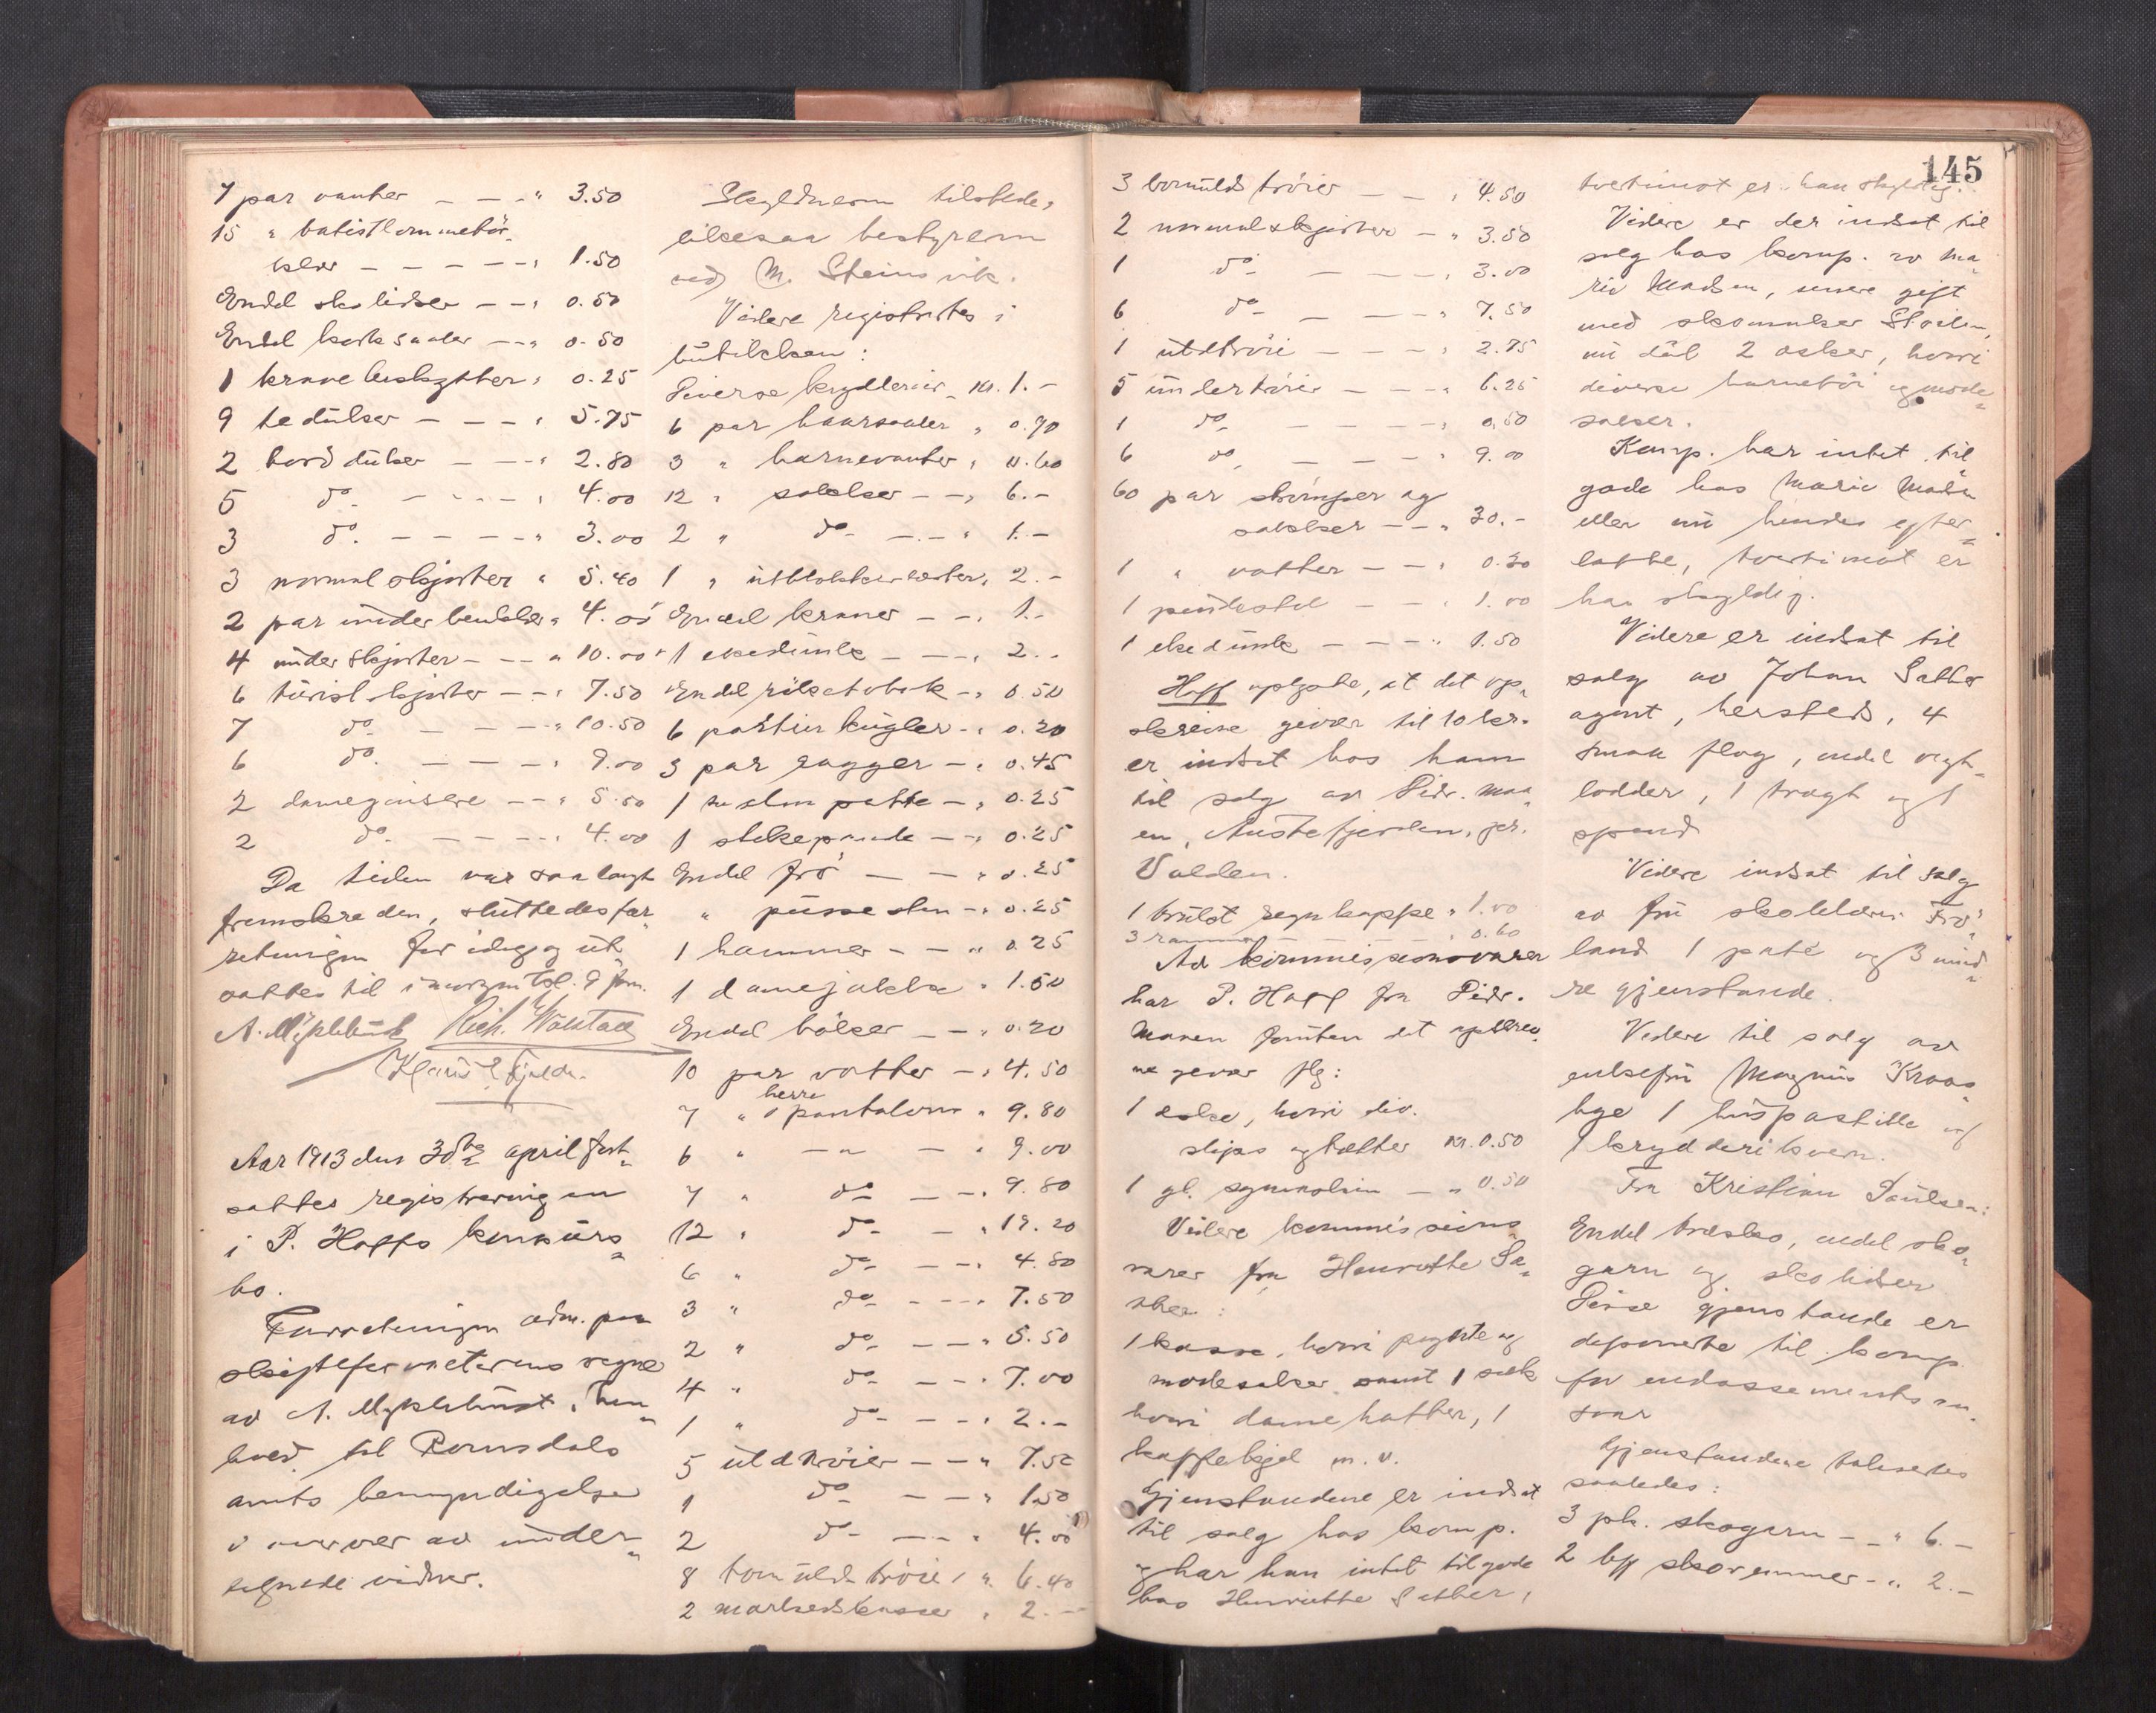 7 par vanter — — " 3.50
15 " batistlommetör-
klær — — — — " 1.50
Endel skolidser — — " 0.50
Endel korksaaler — — " 0.50
1 kravebeskytter " 0.25
9 teduker — — — " 5.75
2 bordduker — — " 2.80
5 do — — — " 4.00
3 do. — — — — " 3.00
3 normalskjorter " 5.40
2 par underbenklær " 4.00
4 underskjorter — — " 10.00
6 turistskjorter — — " 7.50
7 do — — — " 10.50
6 do. — — — " 9.00
2 damegensere — — " 5.50
2 do. — — — — " 4.00
Da tiden var saa langt
fremskreden, sluttedes for-
retningen for idag og ut-
sattes til imorgen kl. 9 fm.
A. Myklebust Rich. Wolstad
Klaus E. Fjeldn.
Aar 1913 den 30te april fort-
sattes registreringen
i P. Hoffs konkurs-
bo.
Forretningen adm. paa
skifteforvalterens vegne
av A. Myklebust, hen-
hold til Romsdals
amts bemyndigelse
i overvær av under-
tegnede vidner.
Skyldneren tilstede,
likesaa bestyreren
ved M. Steinsvik.
Videre registrertes i
butikken:
Diverse krydderier kr. 1.-
6 par haarsaaler " 0.90
3 " barnevanter " 0.60
12 " sokker — — " 6.-
2 " do — — " 1.-
1 " utblokker " 2.-
Endel kraner — — " 1.-
1 ekedunk — — — " 2.-
Endel røketobak — " 0.50
6 partier kugler — " 0.20
3 par ragger — " 0.45
1 potte — " 0.25
1 stekepande — " 0.25
Endel frö — — " 0.25
" pussesten — " 0.25
1 hammer — — " 0.25
1 damejakke " 1.50
Endel bøker — — " 0.20
10 par votter — " 4.50
7 " herre pantalons " 9.80
6 " — " — " 9.00
7 " do — — " 9.80
12 " do — " 19.20
6 " do — — " 4.80
3 " do — — " 7.50
2 " do — — " 5.50
4 " do — — " 7.00
1 " do — — " 2.-
5 uldtröier — — " 7.50
1 do — — " 1.50
2 do — — " 4.00
8 bomuldströier " 6.40
2 markedskasser " 2.-
145
3 bomuldströier — — " 4.50
2 normalskjorter — " 3.50
1 do — — — " 3.00
6 do — — — " 7.50
1 uldtröie — — — " 2.75
5 undertröier — — " 6.25
1 do — — — — " 0.50
6 do — — — " 9.00
60 par strömper og
sokker — — " 30.-
1 " votter — — " 0.30
1 — — " 1.00
1 ekedunk — — — " 1.50
Hoff oplyste, at det op-
skrevne gevær til 10 kr.
er indsat hos ham
til salg av Pedr. Maa-
en, Austefjorden, pr.
Volden.
1 brukt regnkappe " 1.00
3 rammer — — — " 0.60
Av kommissionsvarer
har P. Hoff fra Pedr.
Maaen foruten det opskrev-
ne gevær flg:
1 eske, hvori div.
slips og hætter kr. 0.50
1 gl. symaskin — " 0.50
Videre kommissions-
varer fra Henriette Sæ-
ther:
1 kasse, hvori pyynte og
motesaker samt 1 sæk
hvori damehatter, 1
kaffekjel m. v.
Gjenstandene er indsat
til salg hos komp.
og har han intet tilgode
hos Henriette Sæther,
tvertimot er han skyldig.
Videre er der indsat til
salg hos komp. av Ma-
rie Madsen, senere gift
med skomaker Stoilen,
nu död 2 esker, hvori
diverse barnetöi og mote-
saker.
Komp. har intet til
gode hos Marie Madsen
eller nu hendes efter-
latte, tvertimot er
han skyldig.
Videre er indsat til
salg av Johan Sæther
agent, hersteds, 4
smaa flag, endel vegt-
lodder, 1 tragt og 1
spand
Videre indsat til salg
av fru skolelærer Frö-
land 1 paté og 3 mind-
re gjenstande.
Videre til salg av
enkefru Magnus Kraa-
kye 1 huspostille og
1 krydderikvern.
Fra Kristian Paulsen:
Endel træsko, endel sko-
garn og skolidser
Disse gjenstande er
deponerte til komp.
for endossementsan-
svar
Gjenstandene takseres
saaledes:
3 pk. skogarn — — " 6.-
2 bf skoremmer — " 2.-